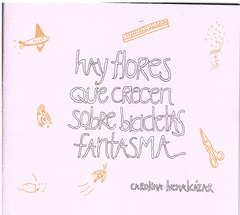 hay flores
que crecen
sobre bicicletas
fantasma
carolina benalcázar